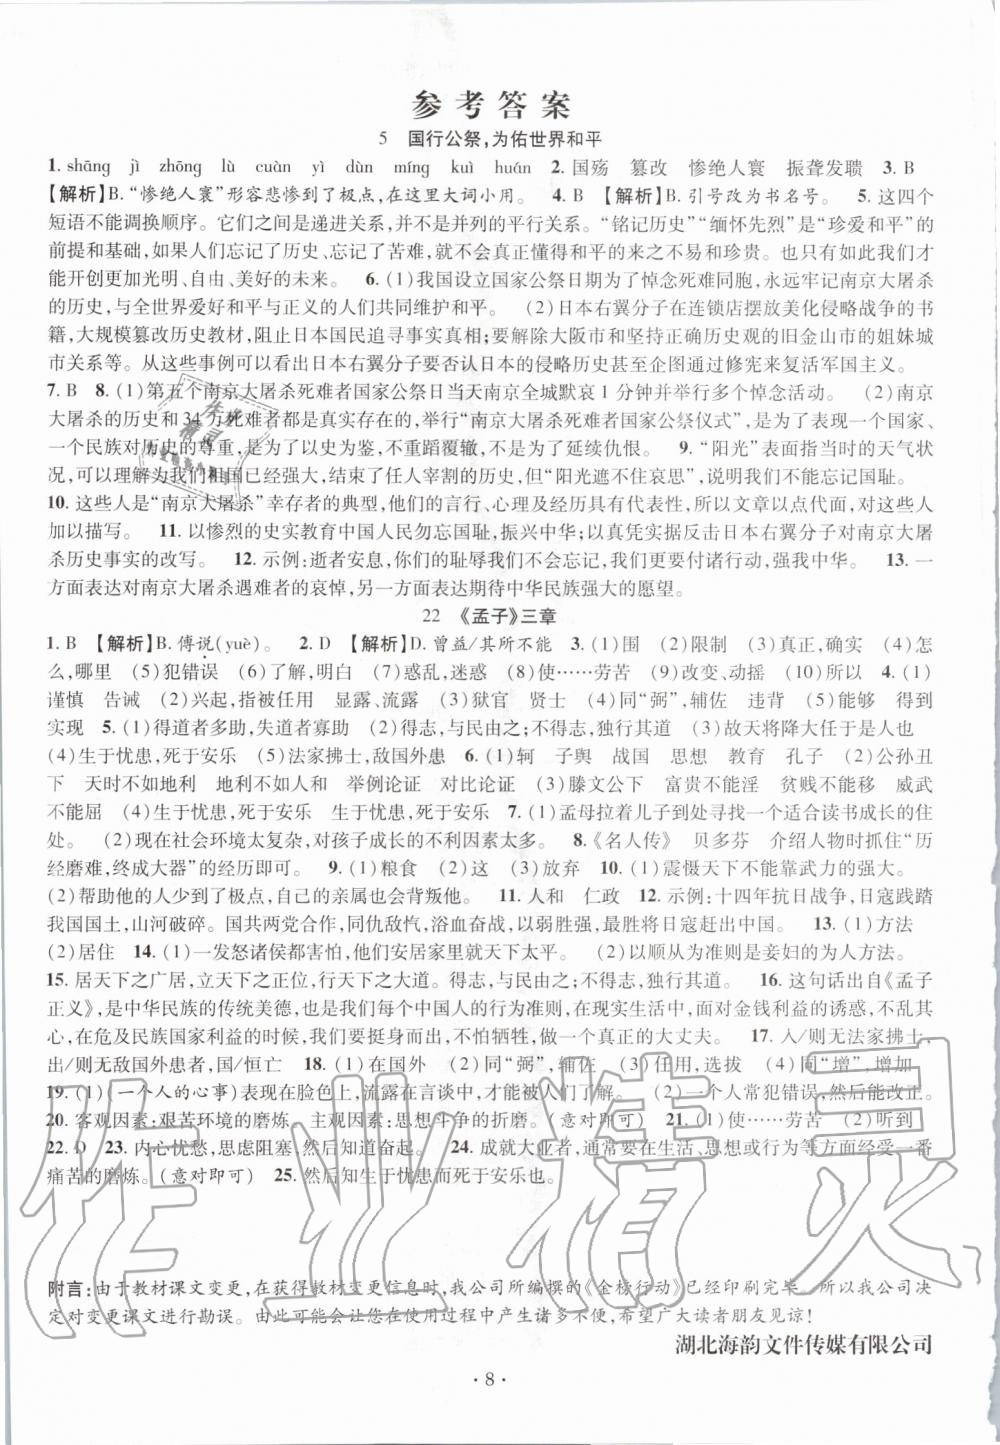 参考答案
5　国行公祭,为佑世界和平
1. shāng　jì　zhōng　lù　cuàn　yì　dùn　míng　kuì　huán　2. 国殇　篡改　惨绝人寰　振聋发聩　3. B
【解析】B. “惨绝人寰”形容悲惨到了极点,在这里大词小用。　4. B　【解析】B. 引号改为书名号。　5. 这四个
短语不能调换顺序。它们之间是递进关系,并不是并列的平行关系。“铭记历史”“缅怀先烈”是“珍爱和平”的
前提和基础,如果人们忘记了历史、忘记了苦难,就不会真正懂得和平的来之不易和珍贵。也只有如此,我们才
能开创更加光明、自由、美好的未来。　6. (1)我国设立国家公祭日期为了悼念死难同胞,永远牢记南京大屠杀
的历史,与全世界爱好和平与正义的人们共同维护和平。　(2)日本右翼分子在连锁店摆放美化侵略战争的书
籍,大规模篡改历史教材,阻止日本国民追寻事实真相;要解除大阪市和坚持正确历史观的旧金山市的姐妹城
市关系等。从这些事例可以看出日本右翼分子要否认日本的侵略历史甚至企图通过修宪来复活军国主义。
7. B　8. (1)第五个南京大屠杀死难者国家公祭日当天南京全城默哀 1 分钟并举行多个悼念活动。　(2)南京
大屠杀的历史和 34 万死难者都是真实存在的,举行“南京大屠杀死难者国家公祭仪式”,是为了一个国家、
一个民族对历史的尊重,是为了以史为鉴,不重蹈覆辙,不是为了延续仇恨。　9. “阳光”表面指当时的天气状
况,可以理解为我们祖国已经强大、结束了任人宰割的历史,但“阳光遮不住哀思”,说明我们不能忘记国耻。
10. 这些人是“南京大屠杀”幸存者的典型,他们的言行、心理及经历具有代表性,所以文章以点代面,对这些人
加以描写。　11. 以惨烈的史实教育中国人民勿忘国耻,振兴中华;以真凭实据反击日本右翼分子对南京大屠
杀历史事实的改写。　12. 示例:逝者安息,你们的耻辱我们不会忘记,我们更要付诸行动,强我中华。　13. 一
方面表达对南京大屠杀遇难者的哀悼,另一方面表达期待中华民族强大的愿望。
22　《孟子》三章
1. B　【解析】B. 傅说(yuè)。　2. D　【解析】D. 曾益/其所不能　3. (1)围　(2)限制　(3)真正,确实　(4)怎
么,哪里　(5)犯错误　(6)了解,明白　(7)惑乱,迷惑　(8)使……劳苦　(9)改变、动摇　(10)所以　4. (1)
谨慎　告诫　(2)兴起,指被任用　显露、流露　(3)狱官　贤士　(4)同“弼”,辅佐　违背　(5)能够　得到
实现　5. (1)得道者多助,失道者寡助　(2)得志,与民由之;不得志,独行其道　(3)故天将降大任于是人也
(4)生于忧患,死于安乐　(5)法家拂士,敌国外患　6. (1)轲　子舆　战国　思想　教育　孔子　(2)公孙丑
下　天时不如地利　地利不如人和　举例论证　对比论证　(3)滕文公下　富贵不能淫　贫贱不能移　威武
不能屈　(4)生于忧患,死于安乐　生于忧患,死于安乐　7. (1)孟母拉着儿子到处寻找一个适合读书成长的住
处。　(2)现在社会环境太复杂,对孩子成长的不利因素太多。　8.《名人传》　贝多芬　介绍人物时抓住“历
经磨难,终成大器”的经历即可。　9. (1)粮食　(2)这　(3)放弃　10. (1)震慑天下不能靠武力的强大。
(2)帮助他的人少到了极点,自己的亲属也会背叛他。　11. 人和　仁政　12. 示例:十四年抗日战争,日寇践踏
我国国土,山河破碎。国共两党合作,同仇敌忾,浴血奋战,以弱胜强,最终将日寇赶出中国。　13. (1)方法
(2)居住　14. (1)一发怒诸侯都害怕,他们安居家里就天下太平。　(2)以顺从为准则是妾妇的为人方法。
15. 居天下之广居,立天下之正位,行天下之大道。得志,与民由之;不得志,独行其道。　16. 这句话出自《孟子
正义》,是中华民族的传统美德,也是我们每个中国人的行为准则,在现实生活中,面对金钱利益的诱惑,不乱其
心,在危及民族国家利益的时候,我们要挺身而出,不怕牺牲,做一个真正的大丈夫。　17. 入/则无法家拂士,
出/则无敌国外患者,国/恒亡　18. (1)在国外　(2)同“弼”,辅佐　(3)任用,选拔　(4)同“增”,增加
19. (1)(一个人的心事)表现在脸色上,流露在言谈中,才能被人们了解。　(2)一个人常犯错误,然后能改正。
20. 客观因素:艰苦环境的磨炼。主观因素:思想斗争的折磨。(意对即可)　21. (1)使……劳苦　(2)听到
22. D　23. 内心忧愁,思虑阻塞,然后知道奋起。　24. 成就大业者,通常要在生活、思想或行为等方面经受一番
痛苦的磨炼。(意对即可)　25. 然后知生于忧患而死于安乐也。
附言:由于教材课文变更,在获得教材变更信息时,我公司所编撰的《金榜行动》已经印刷完毕,所以我公司决
定对变更课文进行勘误。由此可能会让您在使用过程中产生诸多不便,希望广大读者朋友见谅!
湖北海韵文件传媒有限公司
· 8 ·
作业精灵